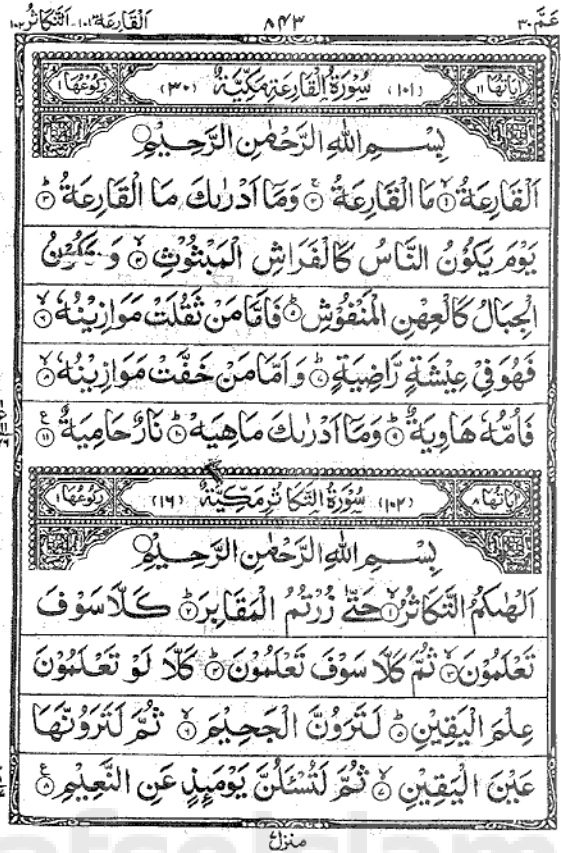 عـمّ ۳۰ ۸۴۳ القارعة ۱۰۱ - التكاثر ۱۰۲
اٰيَاتُهَا ۱۱ (۱۰۱) سُوْرَةُ الْقَارِعَةِ مَكِّيَّةٌ (۳۰) رُكُوْعُهَا ۱
بِسْمِ اللّٰهِ الرَّحْمٰنِ الرَّحِيْمِ
اَلْقَارِعَةُ ۱ مَا الْقَارِعَةُ ۲ وَمَاۤ اَدْرٰىكَ مَا الْقَارِعَةُ ۳
يَوْمَ يَكُوْنُ النَّاسُ كَالْفَرَاشِ الْمَبْثُوْثِ ۴ وَ تَكُوْنُ
الْجِبَالُ كَالْعِهْنِ الْمَنْفُوْشِ ۵ فَاَمَّا مَنْ ثَقُلَتْ مَوَازِيْنُهٗ ۶
فَهُوَ فِيْ عِيْشَةٍ رَّاضِيَةٍ ۷ وَ اَمَّا مَنْ خَفَّتْ مَوَازِيْنُهٗ ۸
فَاُمُّهٗ هَاوِيَةٌ ۹ وَمَاۤ اَدْرٰىكَ مَاهِيَهْ ۱۰ نَارٌ حَامِيَةٌ ۱۱
اٰيَاتُهَا ۸ (۱۰۲) سُوْرَةُ التَّكَاثُرِ مَكِّيَّةٌ (۱۶) رُكُوْعُهَا ۱
بِسْمِ اللّٰهِ الرَّحْمٰنِ الرَّحِيْمِ
اَلْهٰىكُمُ التَّكَاثُرُ ۱ حَتّٰى زُرْتُمُ الْمَقَابِرَ ۲ كَلَّا سَوْفَ
تَعْلَمُوْنَ ۳ ثُمَّ كَلَّا سَوْفَ تَعْلَمُوْنَ ۴ كَلَّا لَوْ تَعْلَمُوْنَ
عِلْمَ الْيَقِيْنِ ۵ لَتَرَوُنَّ الْجَحِيْمَ ۶ ثُمَّ لَتَرَوُنَّهَا
عَيْنَ الْيَقِيْنِ ۷ ثُمَّ لَتُسْـَٔلُنَّ يَوْمَىِٕذٍ عَنِ النَّعِيْمِ ۸
منزل